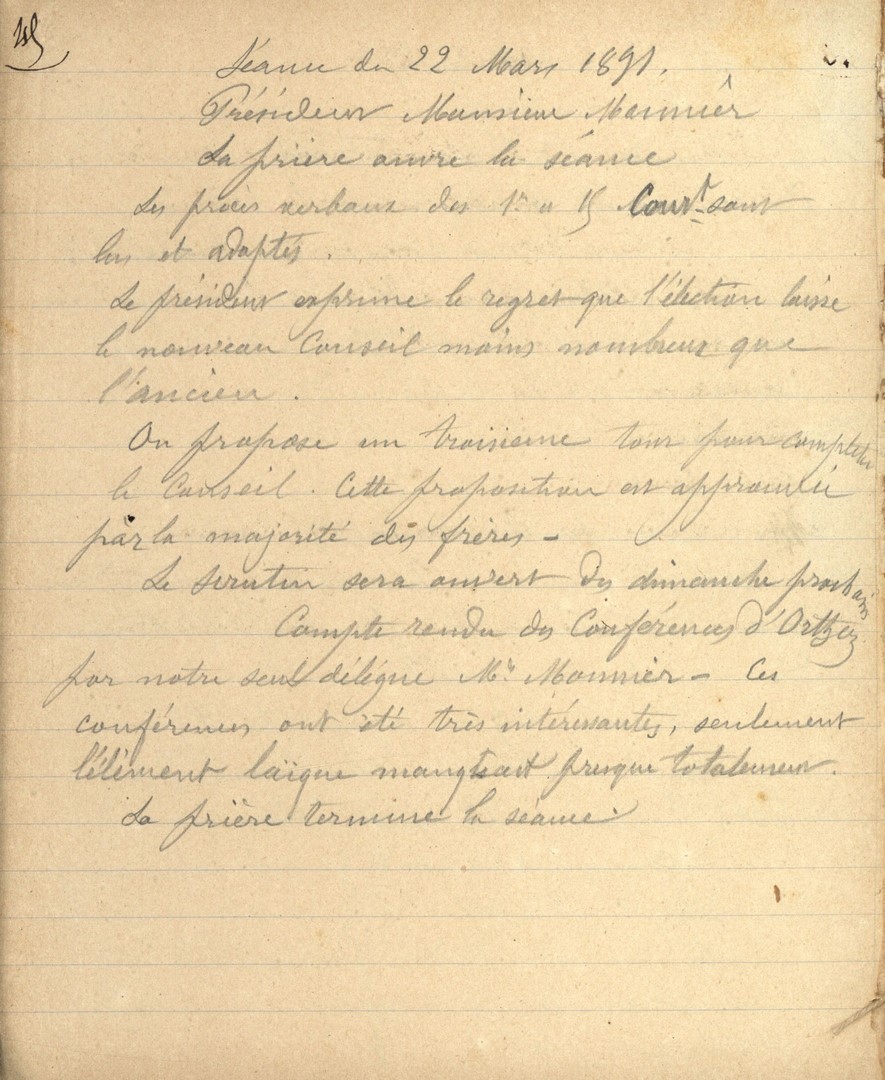 Séance du 22 Mars 1891.
Président Monsieur Monnièr
La prière ouvre la séance
Les procès verbaux des 1er et 15 Court sont
lus et adoptés.
Le président exprime le regret que l'élection laisse
le nouveau Conseil moins nombreux que
l'ancien.
On propose un troisième tour pour completer
le Conseil. Cette proposition est approuvée
par la majorité des frères -
Le scrutin sera ouvert dès dimanche prochain
Compte rendu des Conférences d'Orthez
par notre seul délégué Mr Monnièr - Ces
conférences ont été très intéressantes, seulement
l'élément laïque manquait presque totalement.
La prière termine la séance.